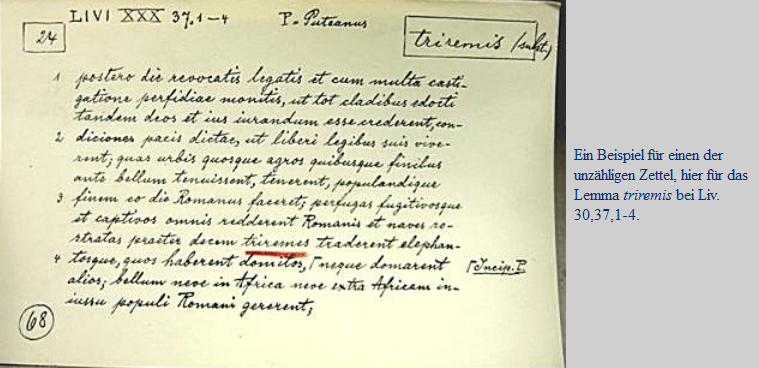 LIVI XXX 37,1–4
P = Puteanus
24
triremis (subst.)
1 postero die revocatis legatis et cum multa casti-
gatione perfidiae monitis, ut tot cladibus edocti
tandem deos et ius iurandum esse crederent, con-
2 diciones pacis dictae, ut liberi legibus suis vive-
rent; quas urbis quosque agros quibusque finibus
ante bellum tenuissent, tenerent, populandique
3 finem eo die Romanus faceret; perfugas fugitivosque
et captivos omnis redderent Romanis et naves ro-
stratas praeter decem triremes traderent elephan-
4 tosque, quos haberent domitos, ⌈neque domarent ⌈Incip. P.
alios; bellum neve in Africa neve extra Africam in-
iussu populi Romani gererent;
68
Ein Beispiel für einen der
unzähligen Zettel, hier für das
Lemma triremis bei Liv.
30,37,1-4.